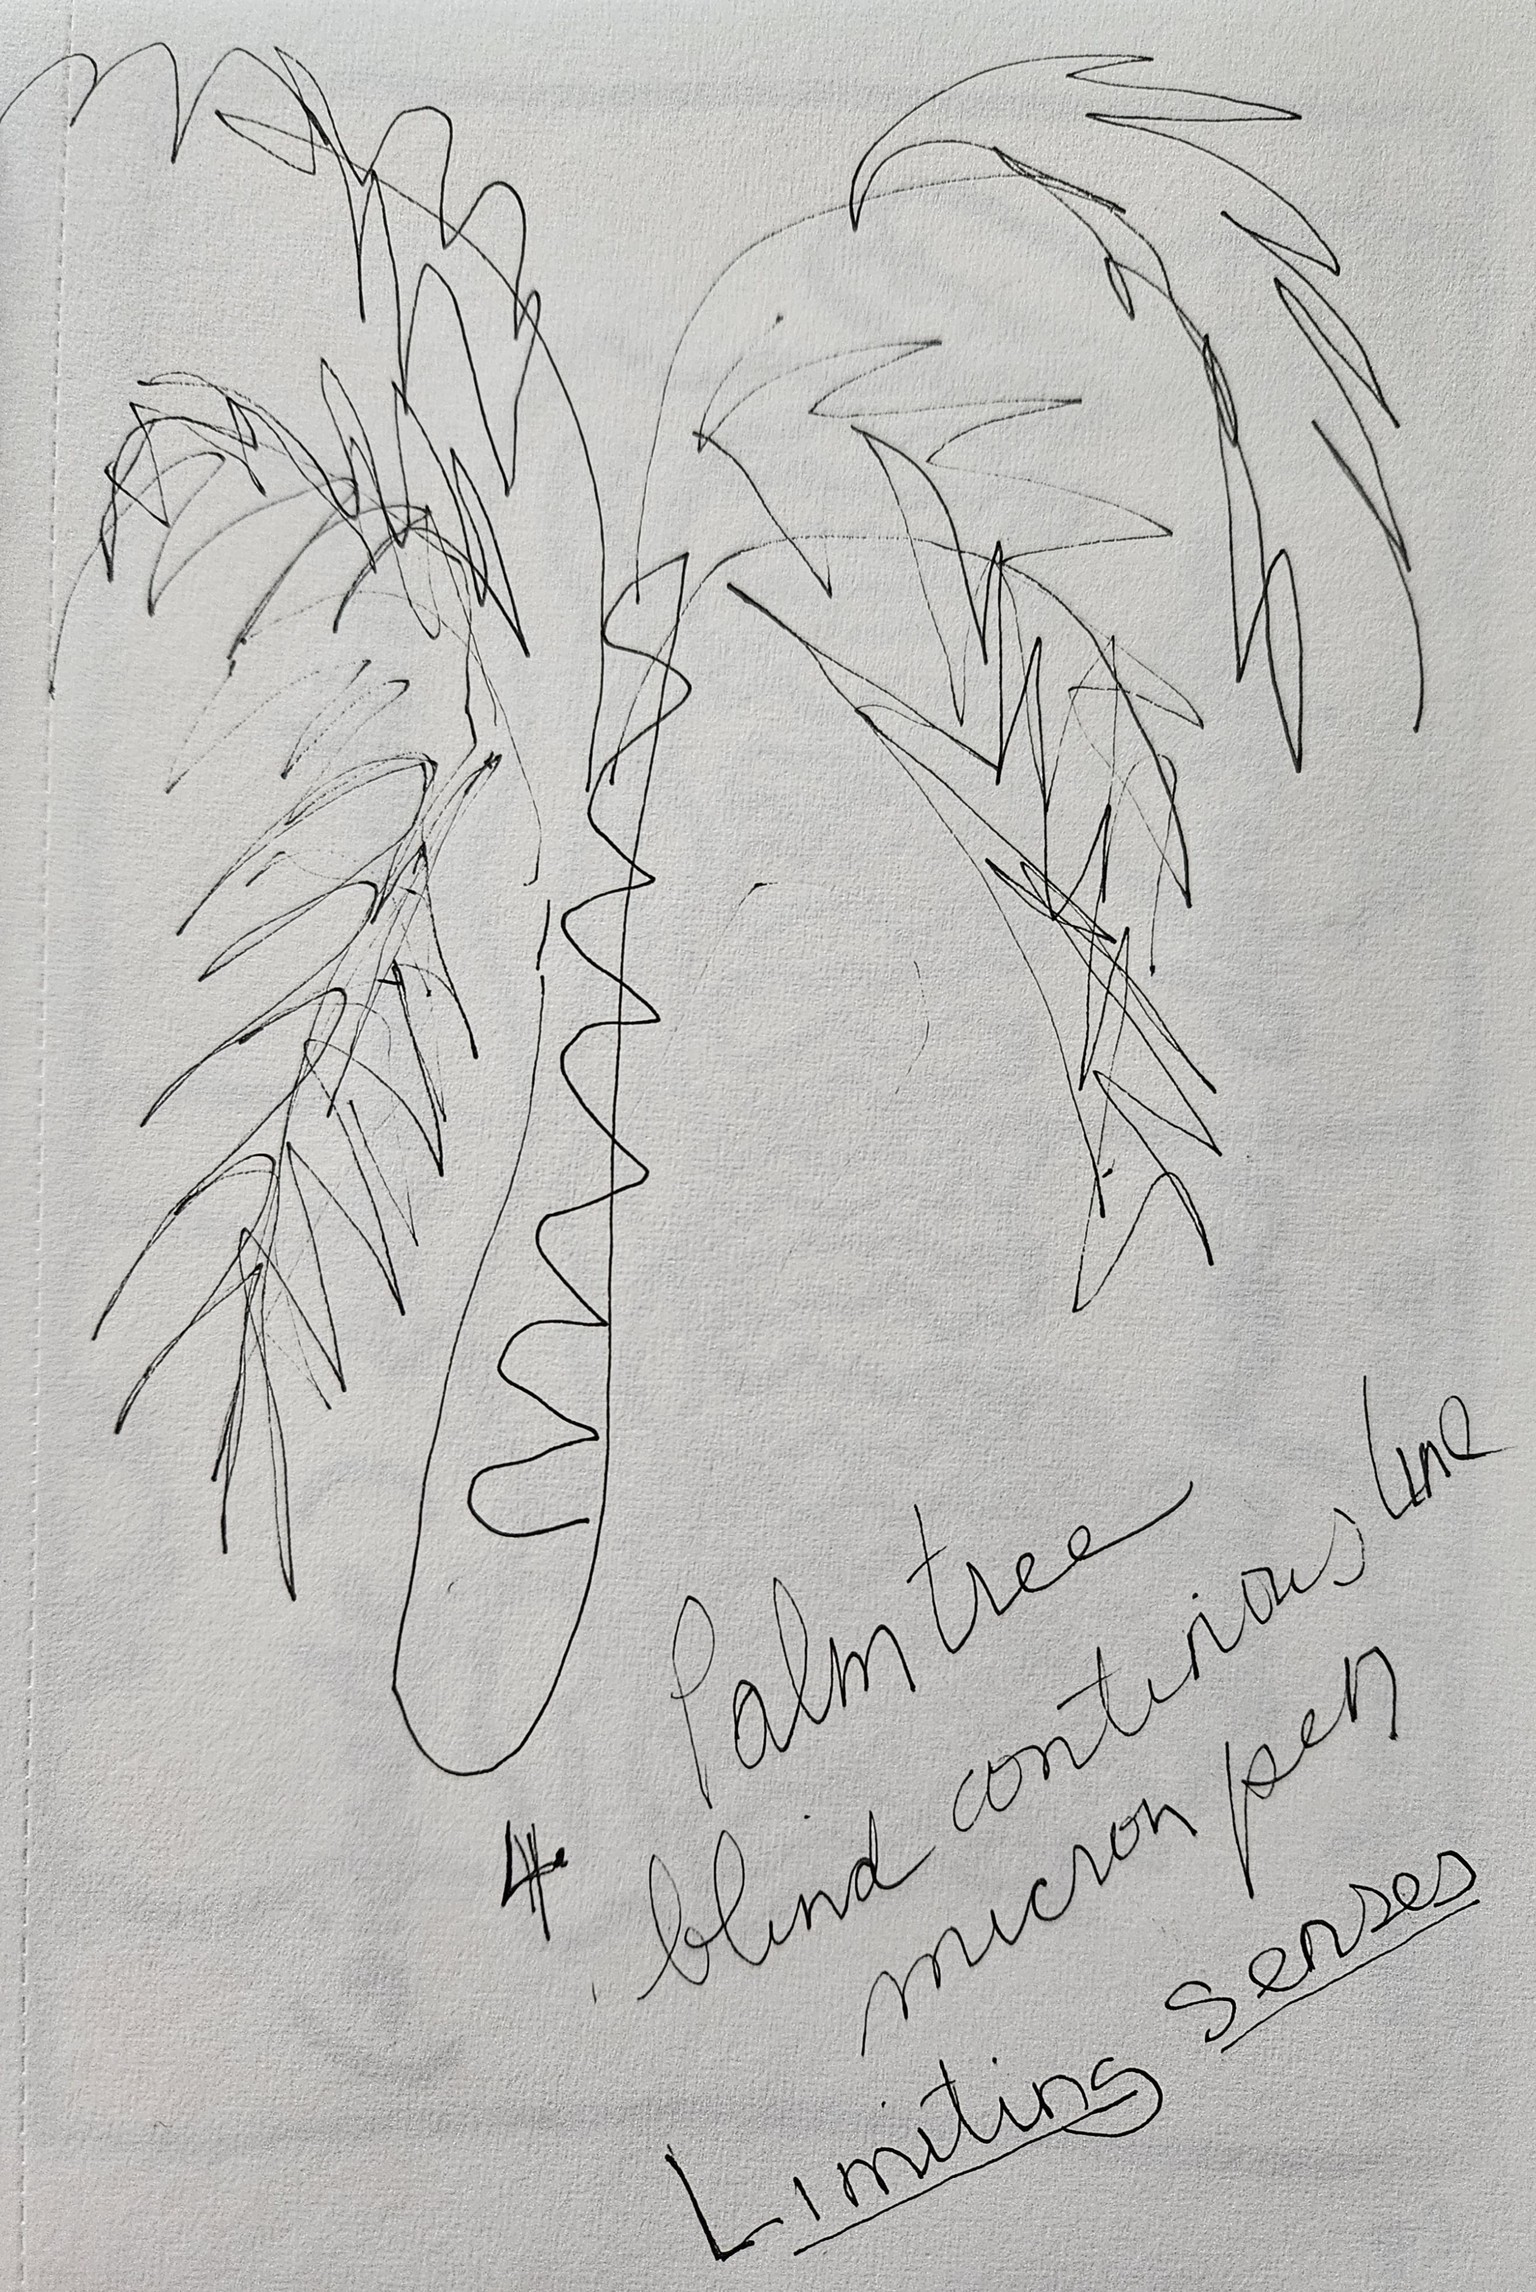 Palm tree
blind continious Line
micron pen
Limiting senses
4